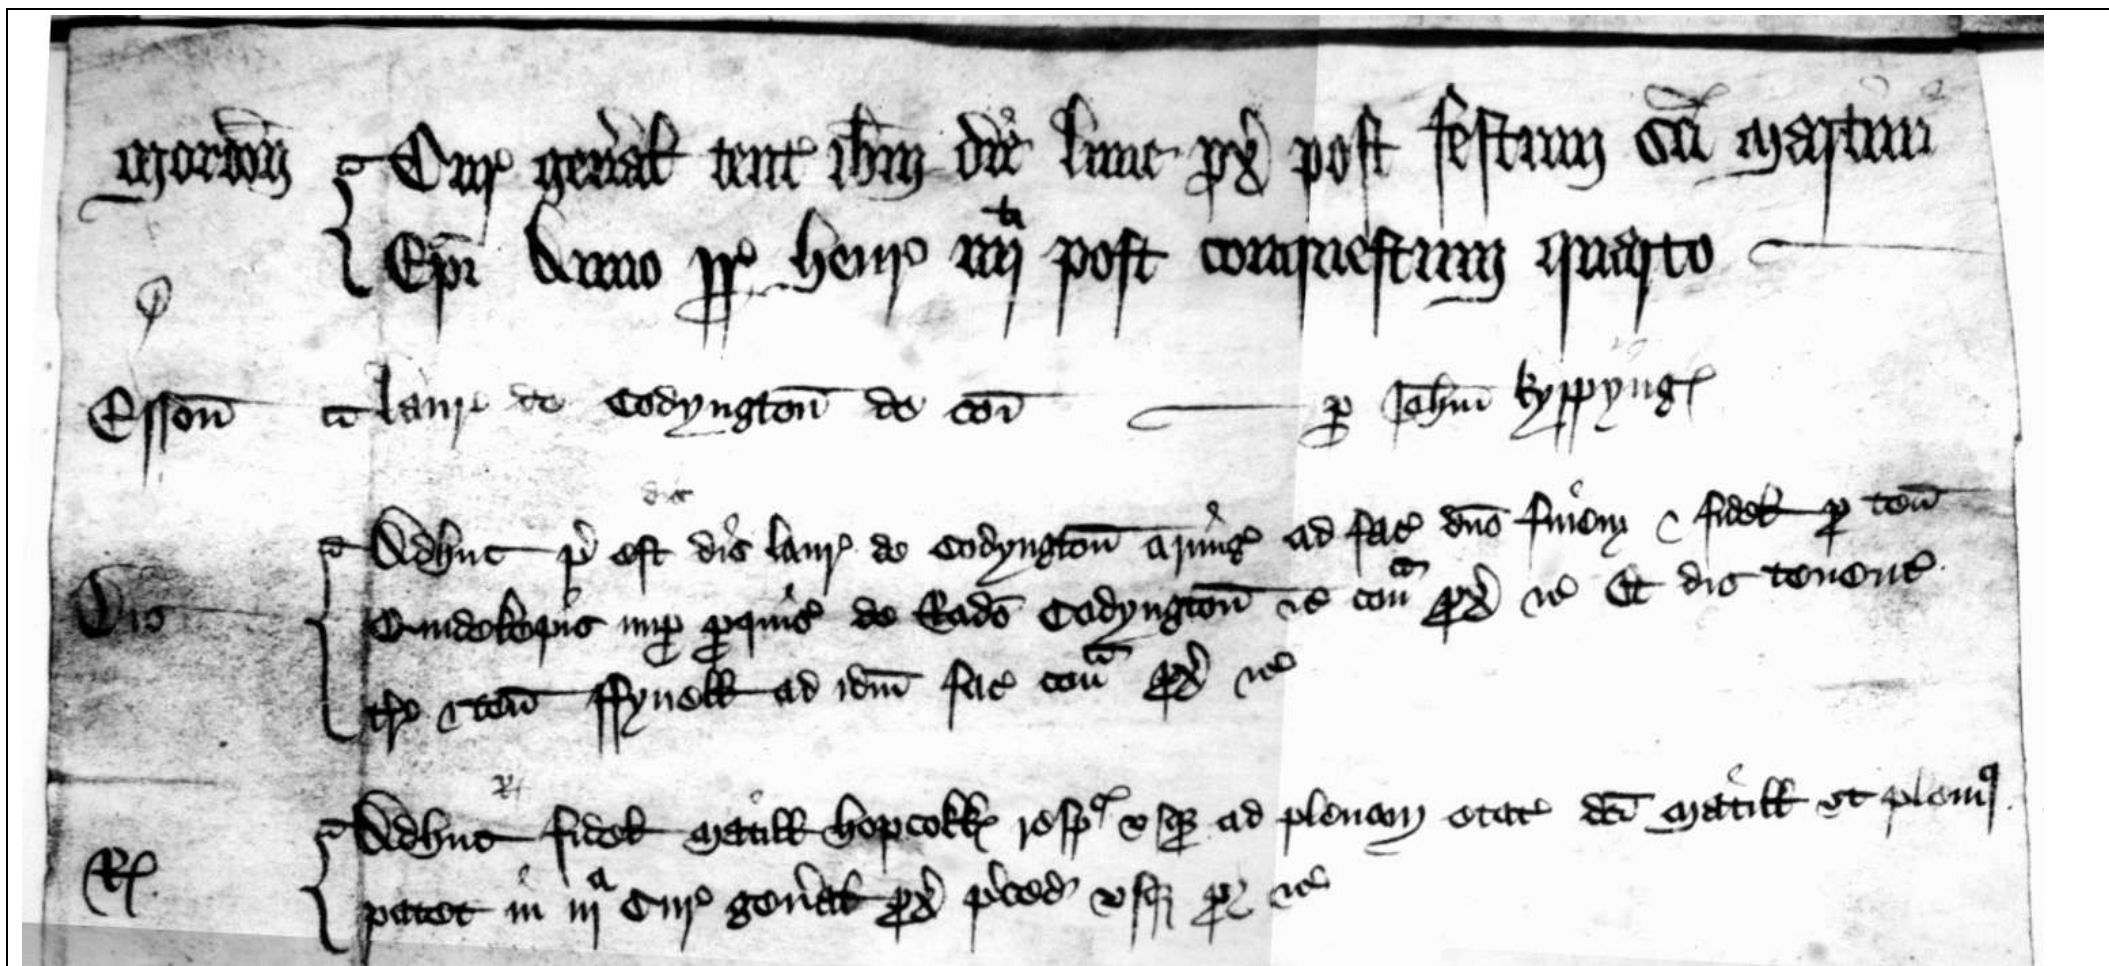 Mordon Cur gen'al tent ib'm die lune px post festum sci Martini
Epi Anno rr Henr iiijti post conquestum quarto
Esson Laur de Codyngton de coi p Joh'm Kyppyng
dis
Dis Adhuc p est dis Laur de Codyngton armig ad fac dno finem & fidel p ten
quondam nup pquis de Rado Codyngton ie con px ie Et dis tenent
tre & ten ffynell ad idm fac con px ie
R
R Adhuc fidel Matill Hopcokk resp usq ad plenam etate dce Matill ut plenius
patet in iija Cur gen'al px p'ced usq p ie